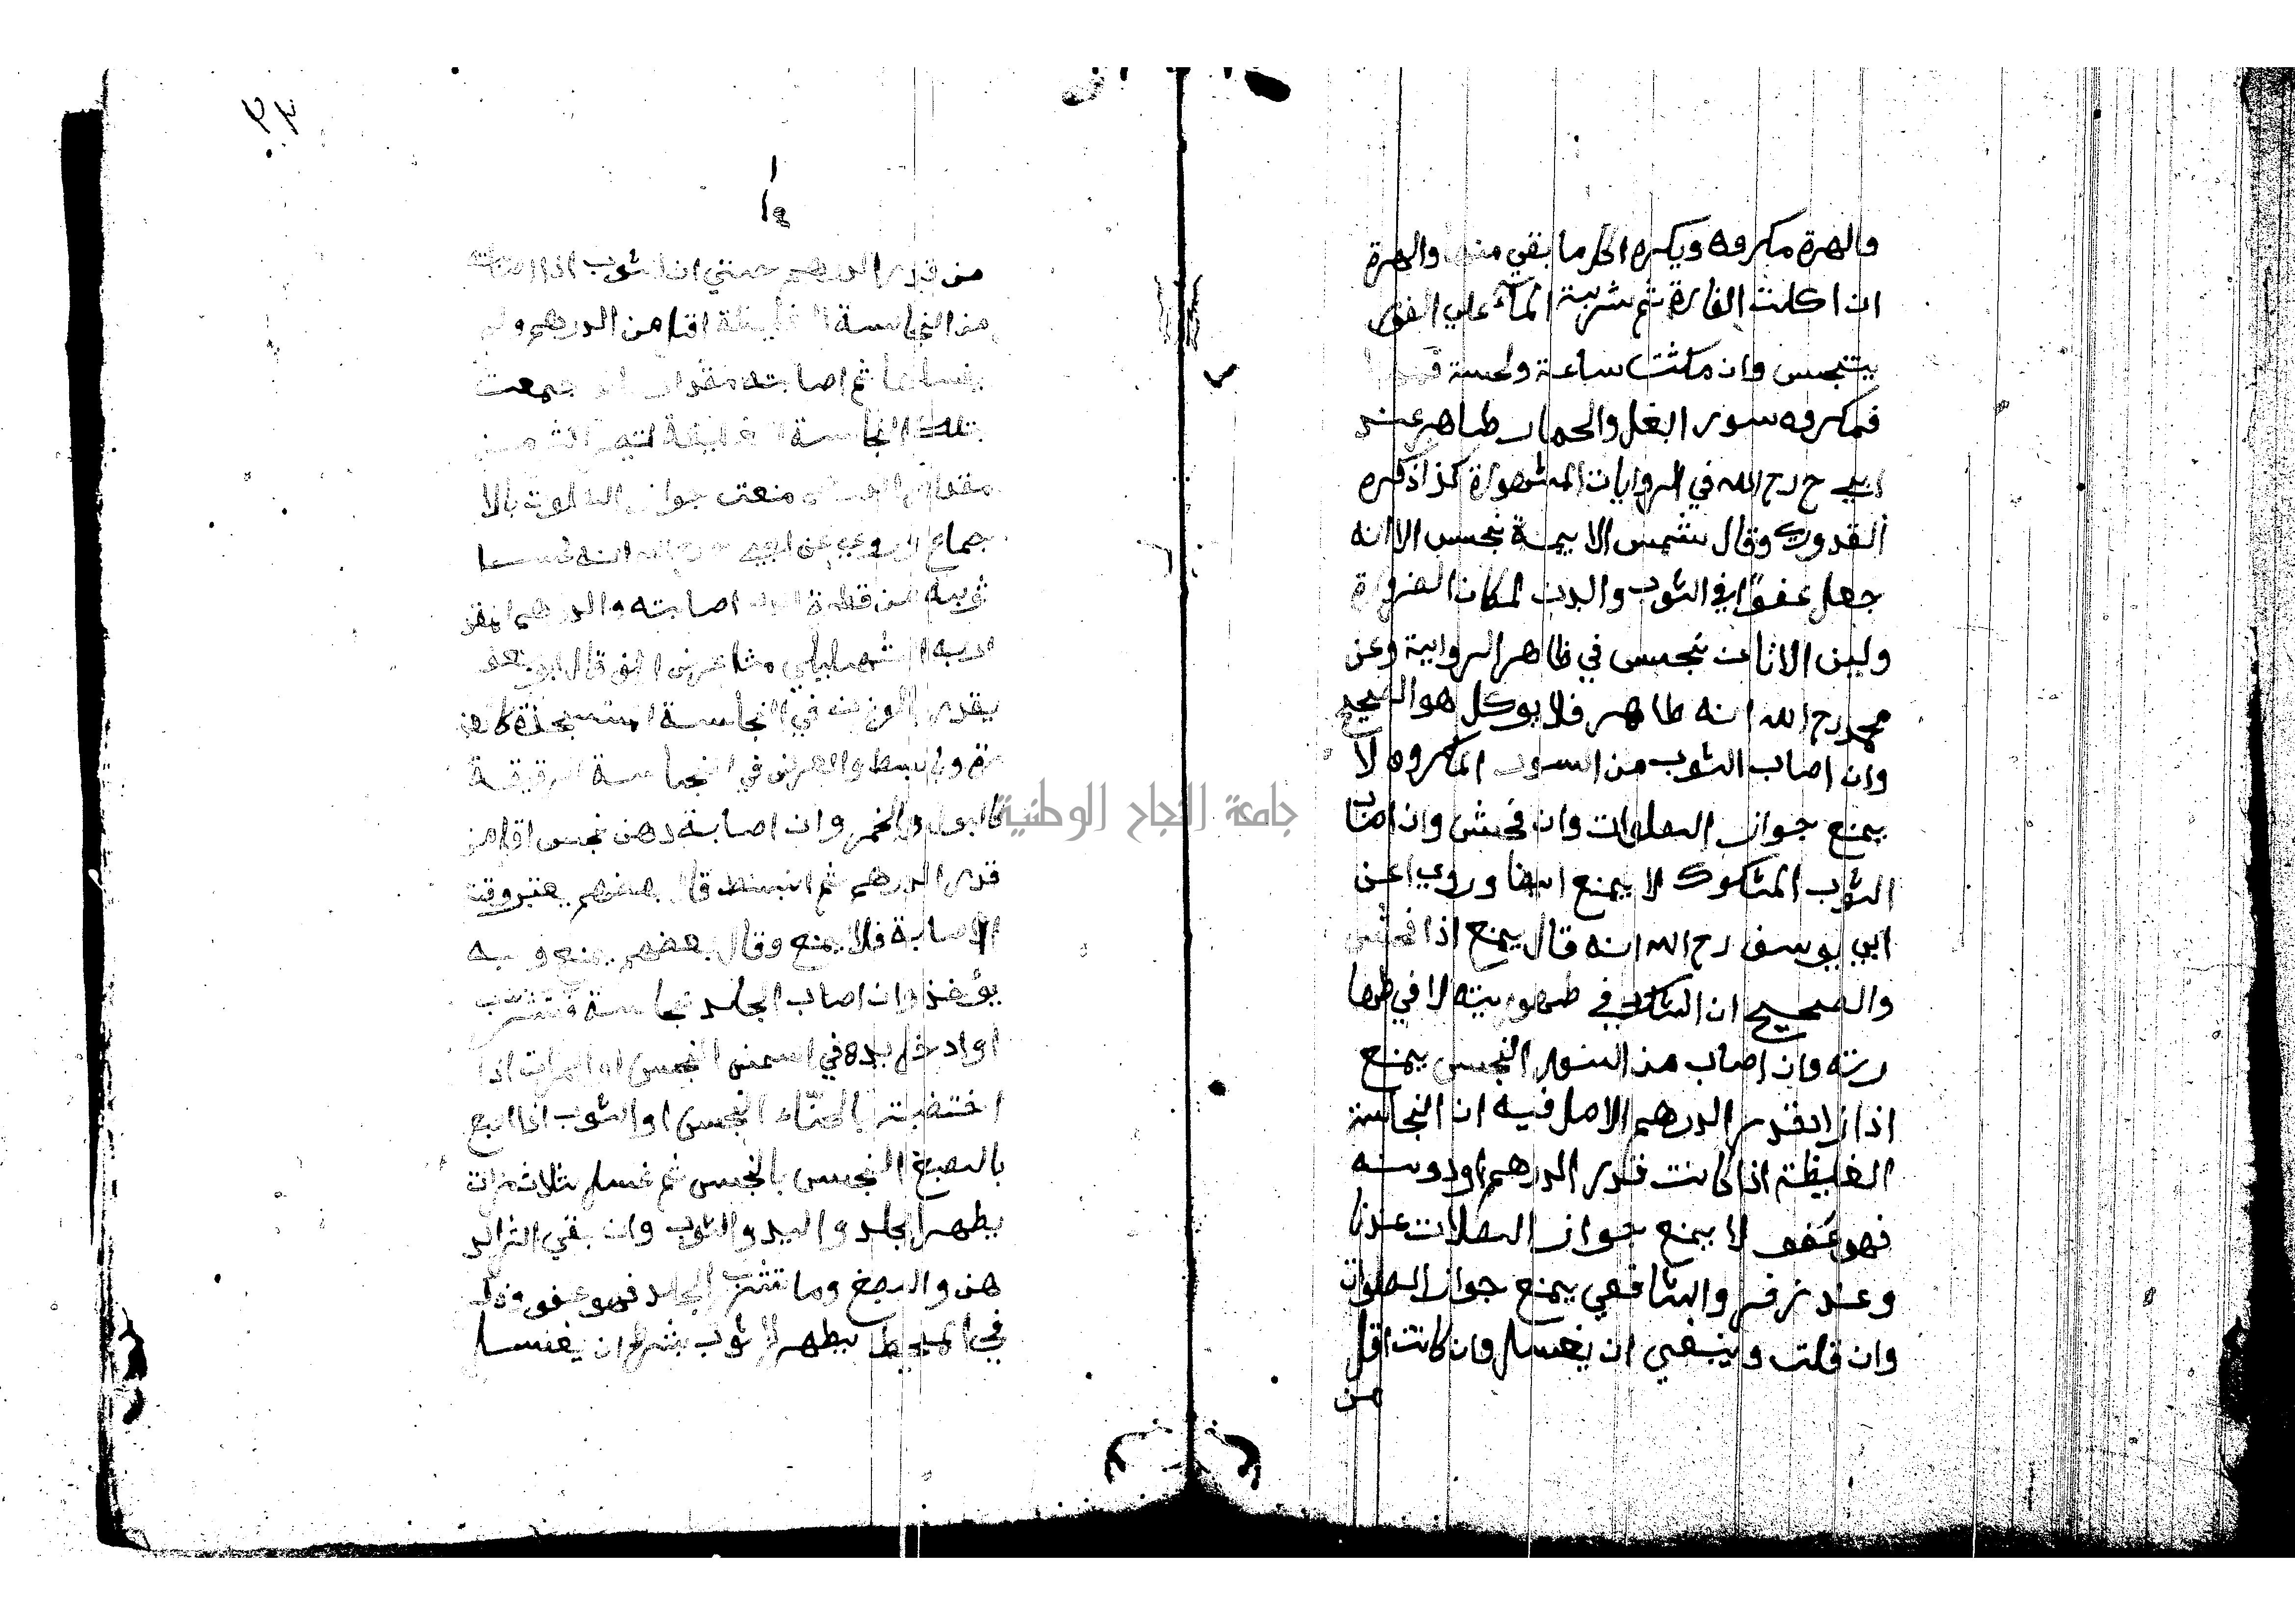 والهرة مكروه ويكره اكل ما بقي منها والهرة
ان اكلت الفارة ثم شربة المآء علي الفور
يتنجس وان مكثت ساعة ولحسة فمها
فمكروه سور البغل والحمار طاهر عند
ابي ح رح الله في الروايات المشهوارة كذا ذكره
القدوري وقال شمس الايمة نجس الا انه
جعل عفوًا في الثوب والبدن لمكان الضرورة
ولبن الاتان نجس في ظاهر الرواية وعن
محمد رح الله انه طاهر فلا يوكل هو الصحيح
وان اصاب الثوب من السور المكروه لا
يمنع جواز الصلوات وان فحش وان اصاب
الثوب المشكوك لا يمنع ايضا وروي اعن
ابي يوسف رح الله انه قال يمنع اذا فحش
والصحيح ان الشك في طهوريته لا في طها
رته وان اصاب من السور النجس يمنع
اذا زاد قدر الدرهم الاصل فيه ان النجاسة
الغليظة اذا كانت قدر الدرهم او دونه
فهو عفو لا يمنع جواز الصلات عندنا
وعند زفر والشافعي يمنع جواز الصلوات
وان قلت وينبغي ان يغسل وان كانت اقل
من
٣٣
من قدر الدرهم حتي ان الثوب اذا اصابته
من النجاسة الغليظة اقل من الدرهم ولم
يغسلها ثم اصابته مقدار جمعت
تلك النجاسة الغليظة من
مقدار منعت جواز الصلوت بالا
جماع روي عن ابي ح رح الله انه غسل
ثوبه من قطرة اصابته والدرهم
الشهليلي مثل عرض الكف قال
يقدر بالوزن في النجاسة المستجسدة كالعذ
رة وبالبسط والعرض في النجاسة الرقيقة
كالبول والخمر وان اصابة دهن نجس اقل من
قدر الدرهم ثم انبسط قال بعضهم يعتبر وقت
الاصابة فلا يمنع وقال بعضهم يمنع وبه
يؤخذ وان اصاب الجلد نجاسة فتشرب
او ادخل يده في السمن النجس او المرات اذا
اختضبت بالحنّاء النجس او الثوب اذا اصبغ
بالصبغ النجس بالنجس ثم غسل ثلاث مرات
يطهر الجلد واليد والثوب وان بقي اثر الد
هن والصبغ وما تشرب الجلد فهو عفو وذكر
في المحيط يطهر لا ثوب بشرط ان يغسل
جامعة النجاح الوطنية